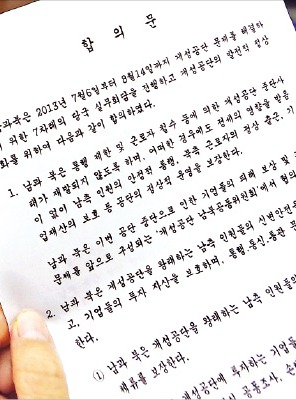 합 의 문
남과 북은 2013년 7월6일부터 8월14일까지 개성공단 문제를 해결하
기 위한 7차례의 당국 실무회담을 진행하고 개성공단의 발전적 정상
화를 위하여 다음과 같이 합의하였다.
1. 남과 북은 통행 제한 및 근로자 철수 등에 의한 개성공단 중단사
태가 재발되지 않도록 하며, 어떠한 경우에도 정세의 영향을 받음
이 없이 남측 인원의 안정적 통행, 북측 근로자의 정상 출근, 기
업재산의 보호 등 공단의 정상적 운영을 보장한다.
남과 북은 이번 공단 중단으로 인한 기업들의 피해 보상 및
문제를 앞으로 구성되는 '개성공단 남북공동위원회'에서 협의
2. 남과 북은 개성공단을 왕래하는 남측 인원들의 신변안전
고, 기업들의 투자 자산을 보호하며, 통행·통신·통관 문
한다.
① 남과 북은 개성공단을 왕래하는 남측 인원
체류를 보장한다.
개성공단에 투자하는 기업들
공동조사, 손